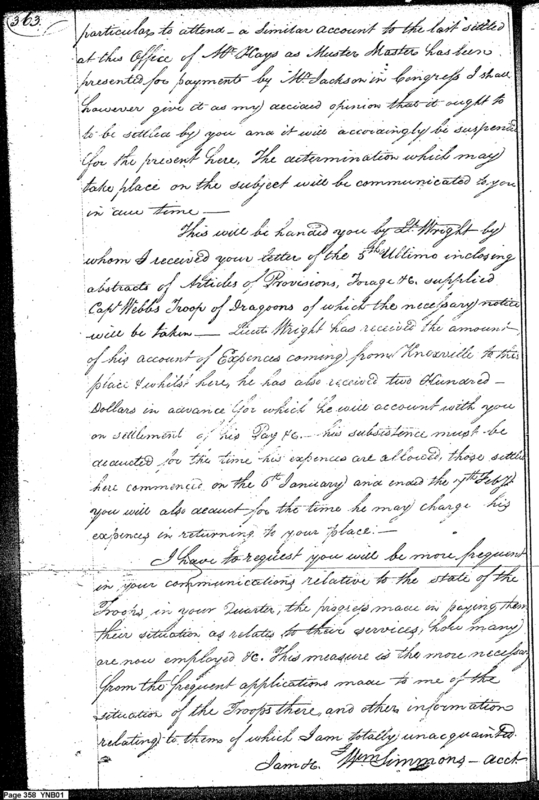 363.
particular to attend - a similar account to the last settled
at this Office of Mr Hays as Muster Master has been
presented for payments by Mr Jackson in Congress I shall
however give it as my decided opinion that it ought to
to be settled by you and it will accordingly be suspended
for the present here, The determination which may
take place on the subject will be communicated to you
in due time —
This will be handed you by Lt. Wright by
whom I received your letter of the 5th Ultimo inclosing
abstracts of Articles of Provisions, Forage &c. supplied
Capt Webbs Troop of Dragoons of which the necessary notice
will be taken — Lieut Wright has received the amount
of his account of Expences coming from Knoxville to this
place & whilst here, he has also received two Hundred -
Dollars in advance for which he will account with you
on settlement of his Pay &c. — his subsistence must be
deducted for the time his expences are allowed, those settled
here commenced on the 6th January and ended the 7th Feby
you will also deduct for the time he may charge his
expences in returning to your place. —
I have to request you will be more frequent
in your communications relative to the state of the
Troops in your Quarter, the progress made in paying them
their situation as relates to their services, how many
are now employed &c. This measure is the more necessary
from the frequent applications made to me of the
situation of the Troops there, and other information
relating to them of which I am totally unacquainted.
I am &c. Wm Simmons - acct
Page 358 YNB01